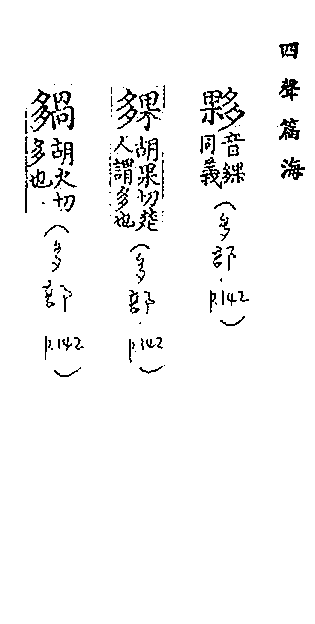 四聲篇海
夥 音綶同義 (多部．p.142)
㚌 胡果切楚人謂多也 (多部．p.142)
胡火切多也．(多部 p.142)